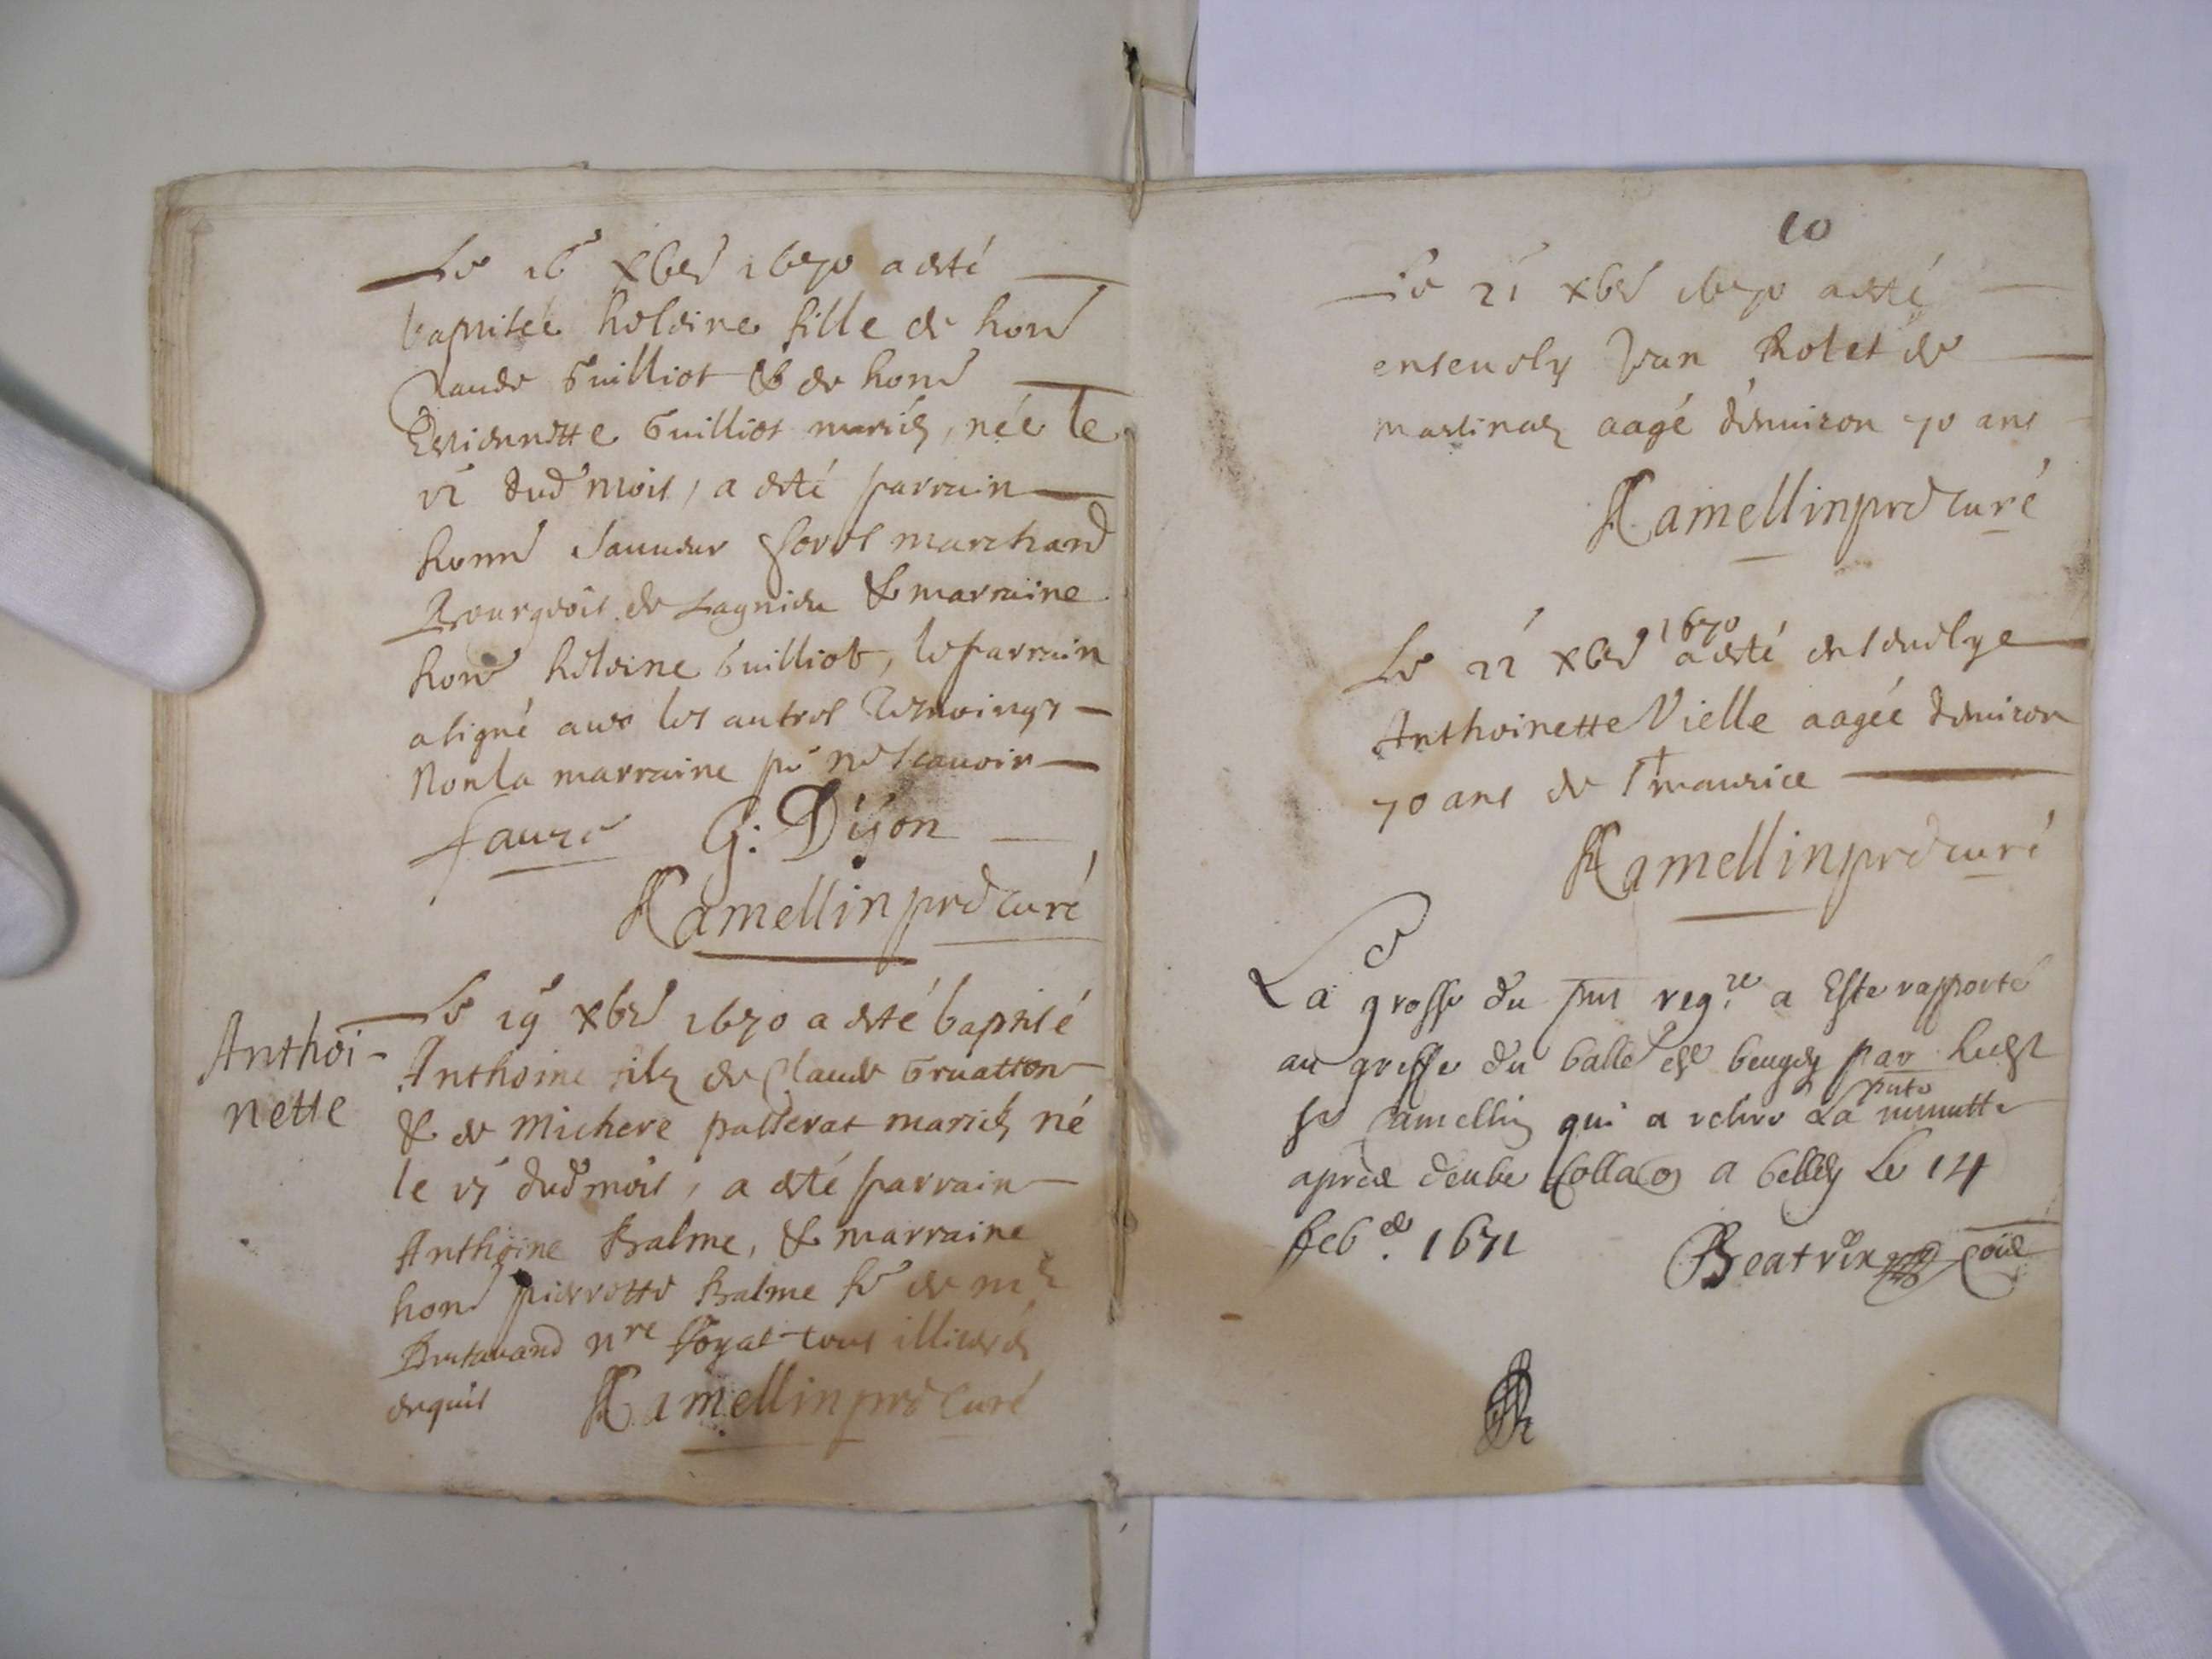 Le 16e xbre 1670 a esté
baptisée heleine fille de hone
Claude Guilliot & de hone
Estiennette Guilliot mariés, née le
dud mois, a esté parrain
honne marchand
Bourgeois de Lagnieu & marraine
hone heleine Guilliot, le parrain
a signé avec les autres tesmoings
Non la marraine pr ne scavoir
faure G: Dijon
Kamellin pre curé
Anthoi-
nette
Le 19e xbre 1670 a esté baptisé
Anthoine filz de Claude Gruatton
& de Michere passerat mariés né
le dud mois, a esté parrain
Anthoine Balme, & marraine
hone pierrette Balme fe de me
nre Royal tous illiterés
enquis Kamellin pre Curé
10
Le 21 xbre 1670 a esté
ensevely Jean Rolet de
aagé d'environ 70 ans
Kamellin pre curé
1670
Le 22 xbre a esté ensevelye
Anthoinette Vielle aagée denviron
70 ans de St maurice
Kamellin pre curé
La grosse du pnt regre a Este rapporté
au greffe du balle de beugey par
sr Camellin qui a retiré La pnte minutte
apres deube Collaon a belley Le 14
feb. 1671
Beatrix